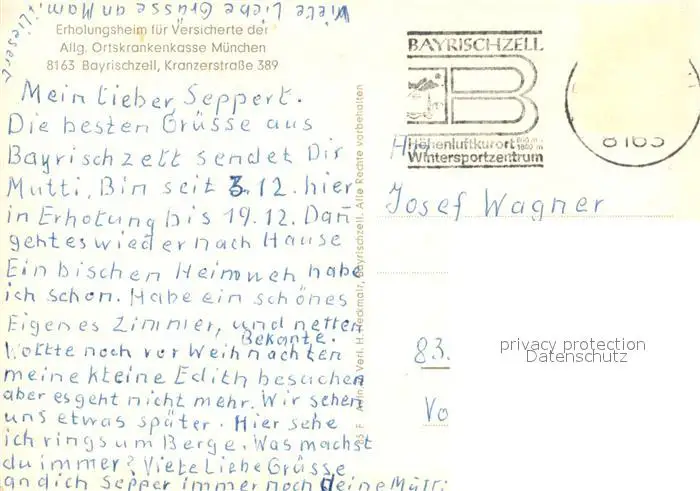 Viele Liebe Grüsse an Mami.
Lieserl
Erholungsheim für Versicherte der
Allg. Ortskrankenkasse München
8163 Bayrischzell, Kranzerstraße 389
Mein Lieber Seppert.
Die besten Grüsse aus
Bayrischzell sendet Dir
Mutti. Bin seit 3.12. hier
in Erholung bis 19.12. Dan
geht es wieder nach Hause
Ein bischen Heimweh habe
ich schon. Habe ein schönes
Eigenes Zimmer, und netten
Bekante.
Wollte noch vor Weihnachten
meine kleine Edith besuchen
aber es geht nicht mehr. Wir sehen
uns etwas später. Hier sehe
ich rings um Berge. Was machst
du immer? Viele Liebe Grüsse
an dich Sepper immer noch deine Mutti.
Verl. H. Heckmair, Bayrischzell. Alle Rechte vorbehalten
BAYRISCHZELL
B
Höhenluftkurort
Wintersportzentrum
8163
Josef Wagner
83.
Vo
privacy protection
Datenschutz